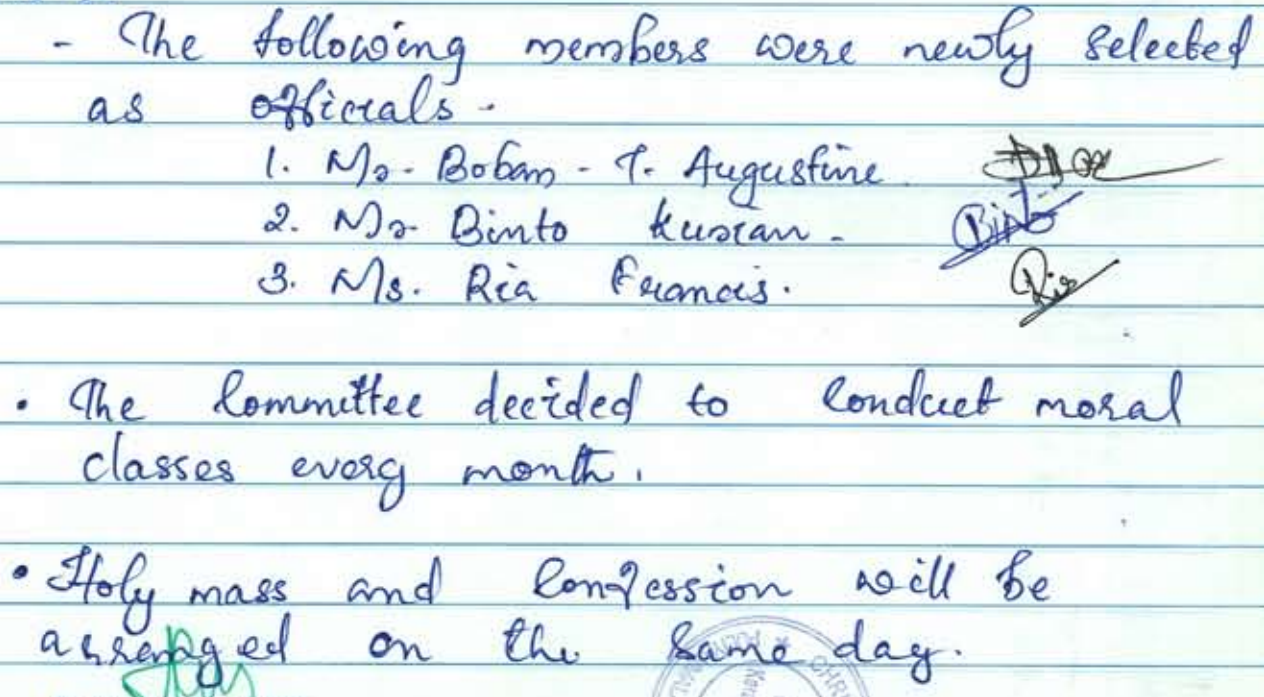 - The following members were newly selected
as officials.
1. Mr. Boban - T. Augustine.
2. Mr Binto Kurian. Binto
3. Ms. Ria Francis. Ria
• The Committee decided to Conduct moral
classes every month.
• Holy mass and Confession will be
arranged on the same day.